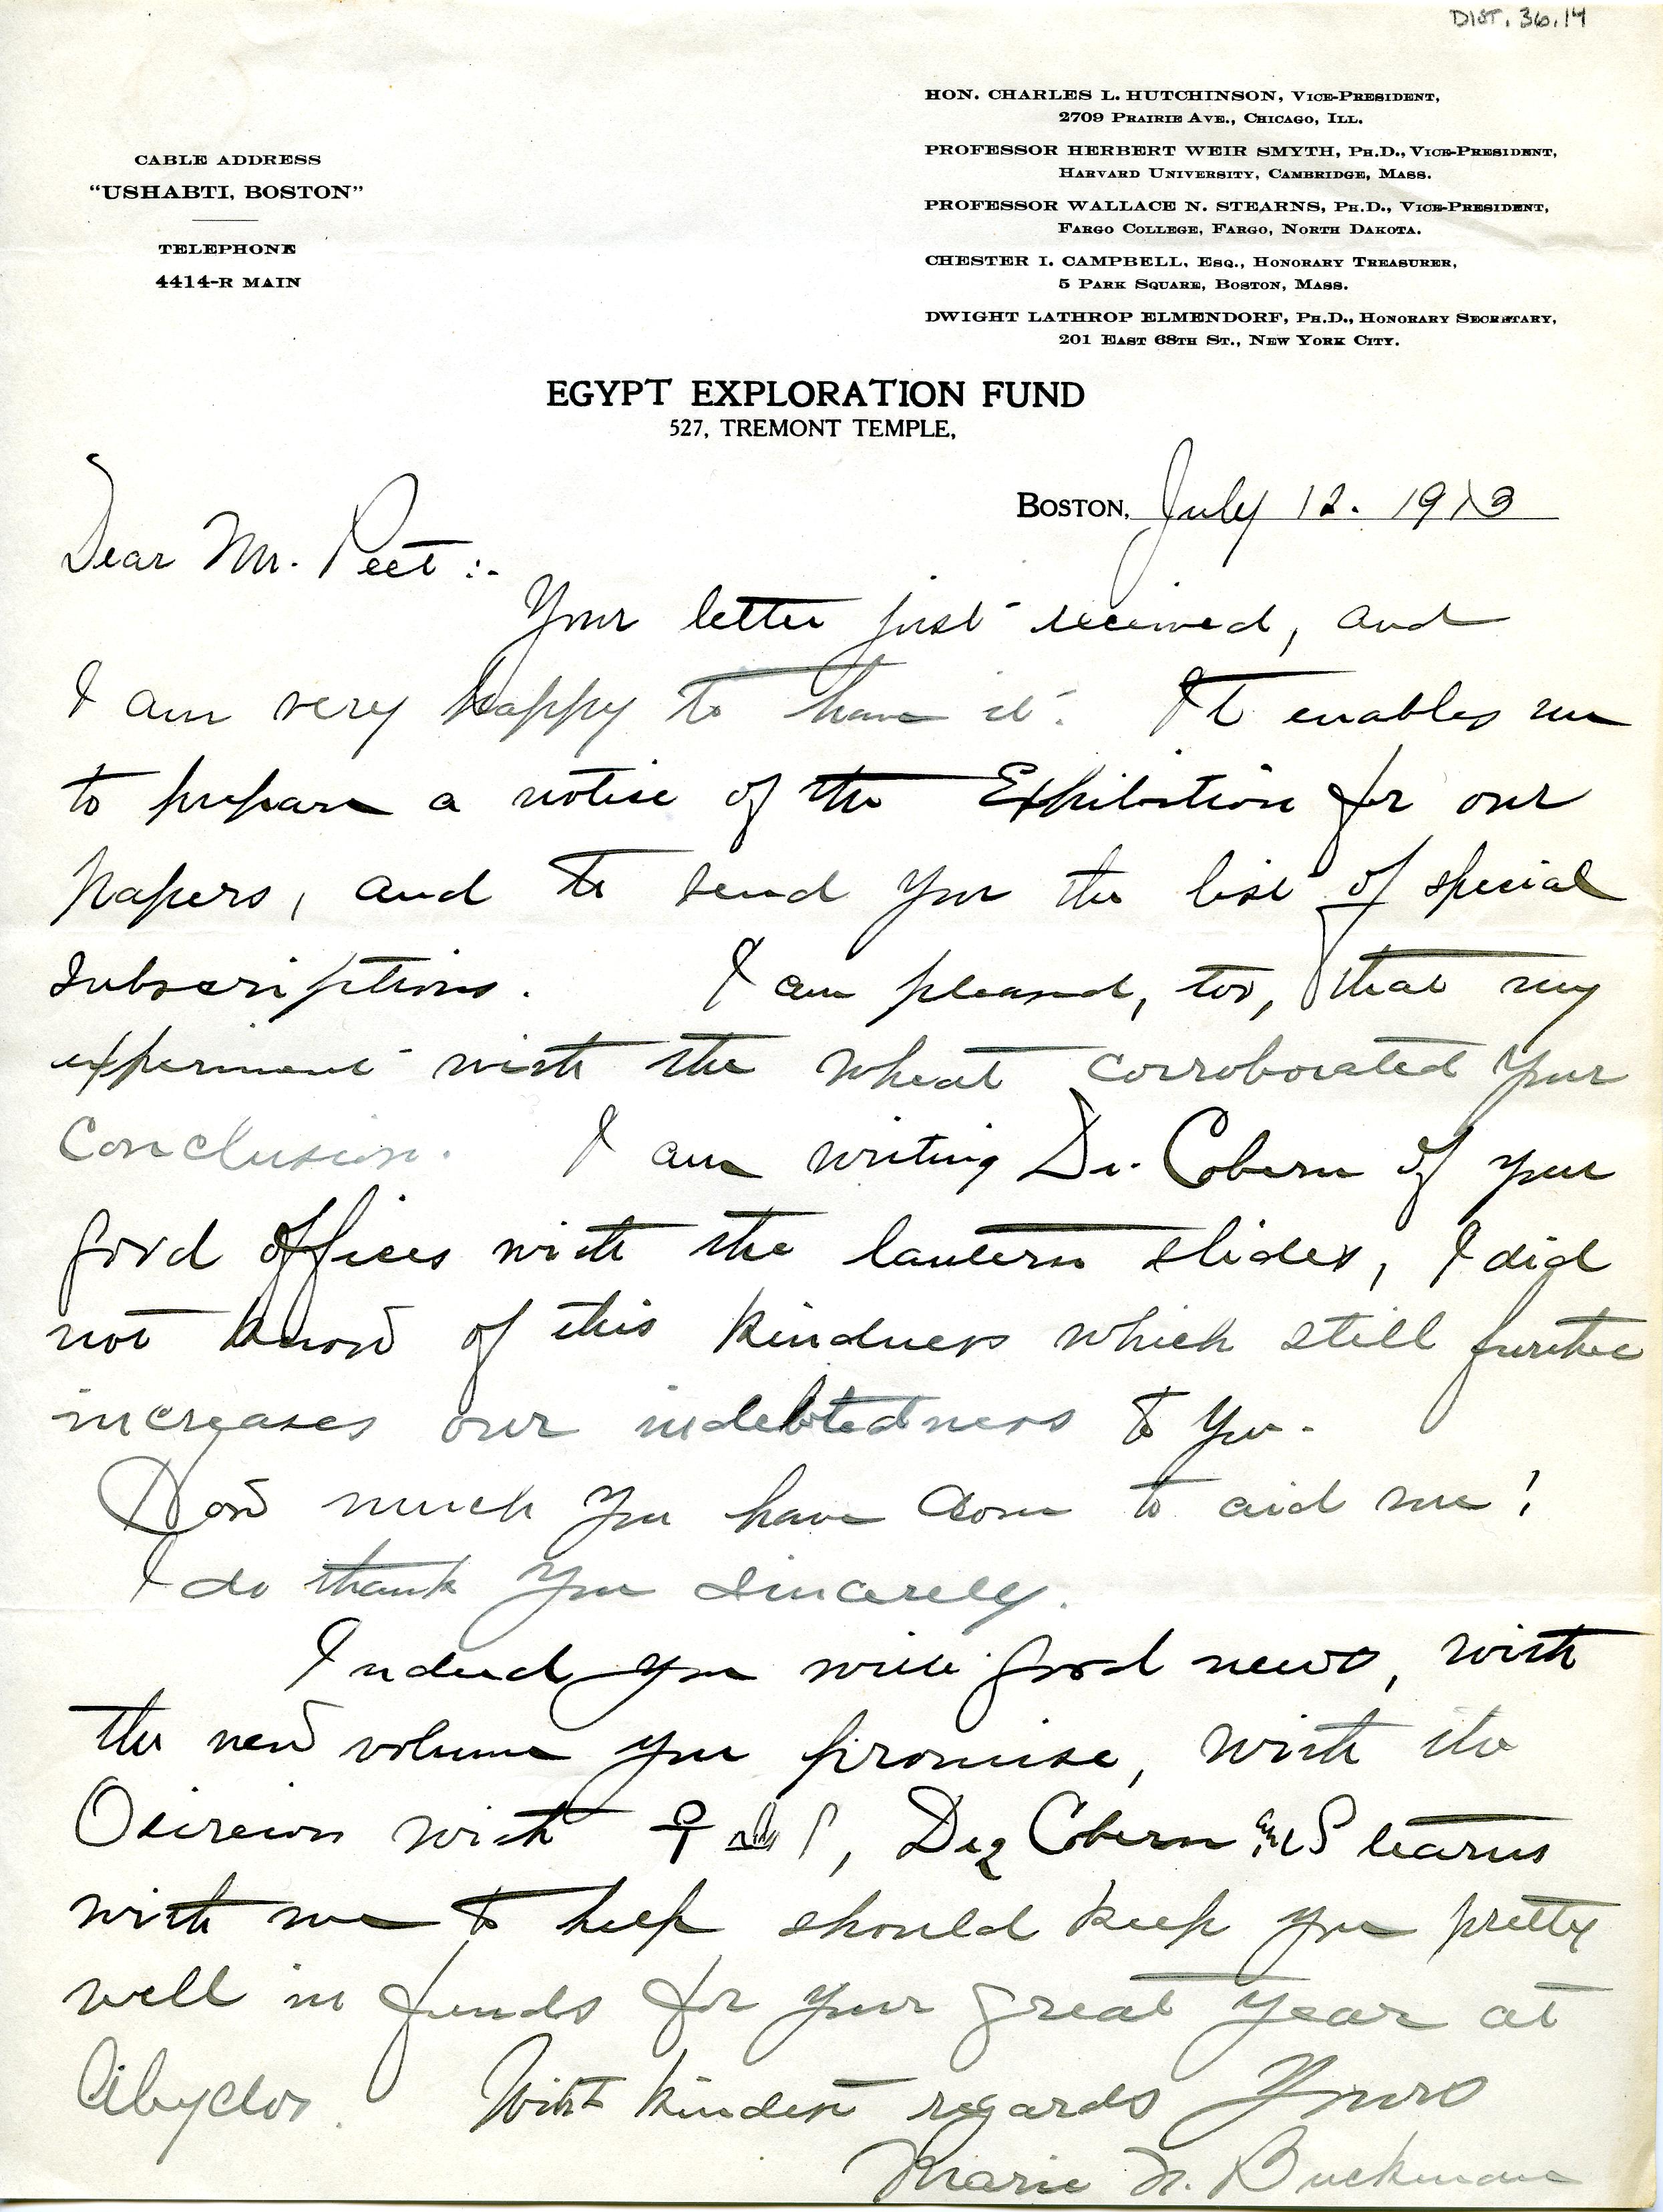 DIST. 36.14
HON. CHARLES L. HUTCHINSON, VICE-PRESIDENT,
2709 PRAIRIE AVE., CHICAGO, ILL.
PROFESSOR HERBERT WEIR SMYTH, PH.D., VICE-PRESIDENT,
HARVARD UNIVERSITY, CAMBRIDGE, MASS.
PROFESSOR WALLACE N. STEARNS, PH.D., VICE-PRESIDENT,
FARGO COLLEGE, FARGO, NORTH DAKOTA.
CHESTER I. CAMPBELL, ESQ., HONORARY TREASURER,
5 PARK SQUARE, BOSTON, MASS.
DWIGHT LATHROP ELMENDORF, PH.D., HONORARY SECRETARY,
201 EAST 68TH ST., NEW YORK CITY.
CABLE ADDRESS
"USHABTI, BOSTON"
TELEPHONE
4414-R MAIN
EGYPT EXPLORATION FUND
527, TREMONT TEMPLE,
BOSTON, July 12. 1913
Dear Mr. Peet :-
Your letter just received, and
I am very happy to have it. It enables me
to prepare a notice of the Exhibition for our
papers, and to send you the list of special
subscriptions. I am pleased, too, that my
experiment with the wheat corroborated your
conclusion. I am writing Dr. Cobern of your
good offices with the lantern slides, I did
not know of this kindness which still further
increases our indebtedness to you.
How much you have done to aid me!
I do thank you sincerely.
Indeed you write good news, with
the new volume you promise, with the
Osireion with , Drs Cobern and Stearns
with me to help should keep you pretty
well in funds for your great year at
Abydos. With kindest regards Yours
Marie N. Buckman